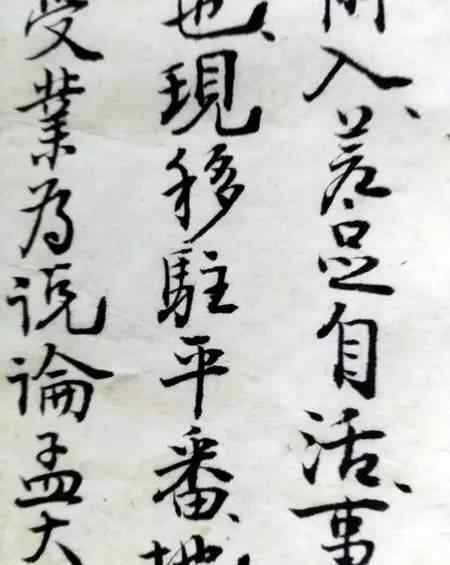 入、差足自活、事
也、現移駐平番、地
受業為説論孟大